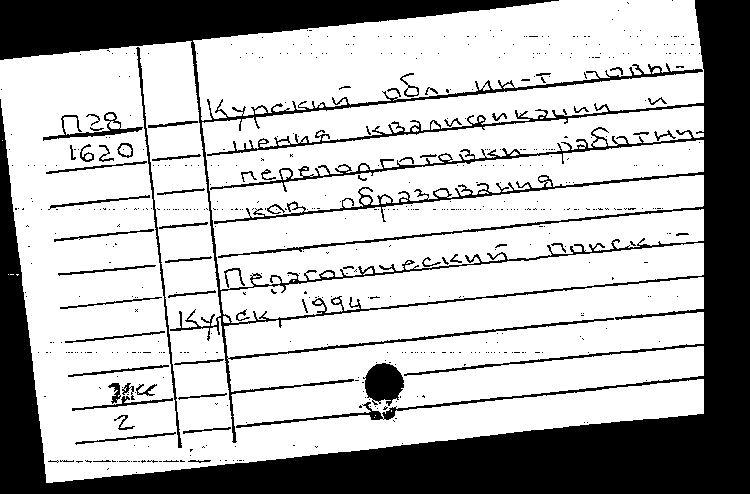 П28
1620
Курский обл. ин-т повы-
шения квалификации и
переподготовки работни-
ков образования
Педагогический поиск. -
Курск, 1994 -
2